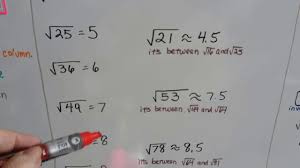 column.
√25 = 5
√36 = 6
√49 = 7
= 8
√21 ≈ 4.5
its between √16 and √25
√53 ≈ 7.5
its between √49 and √64
√78 ≈ 8.5
its between √64 and √81